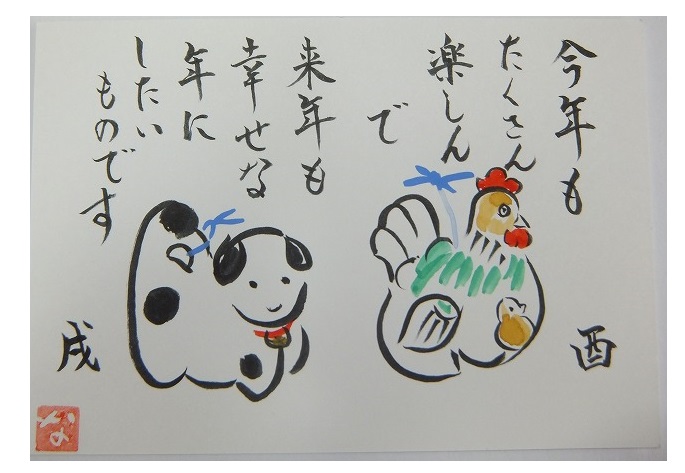 今年も
たくさん
楽しん
で
来年も
幸せな
年に
したい
ものです
酉
戌